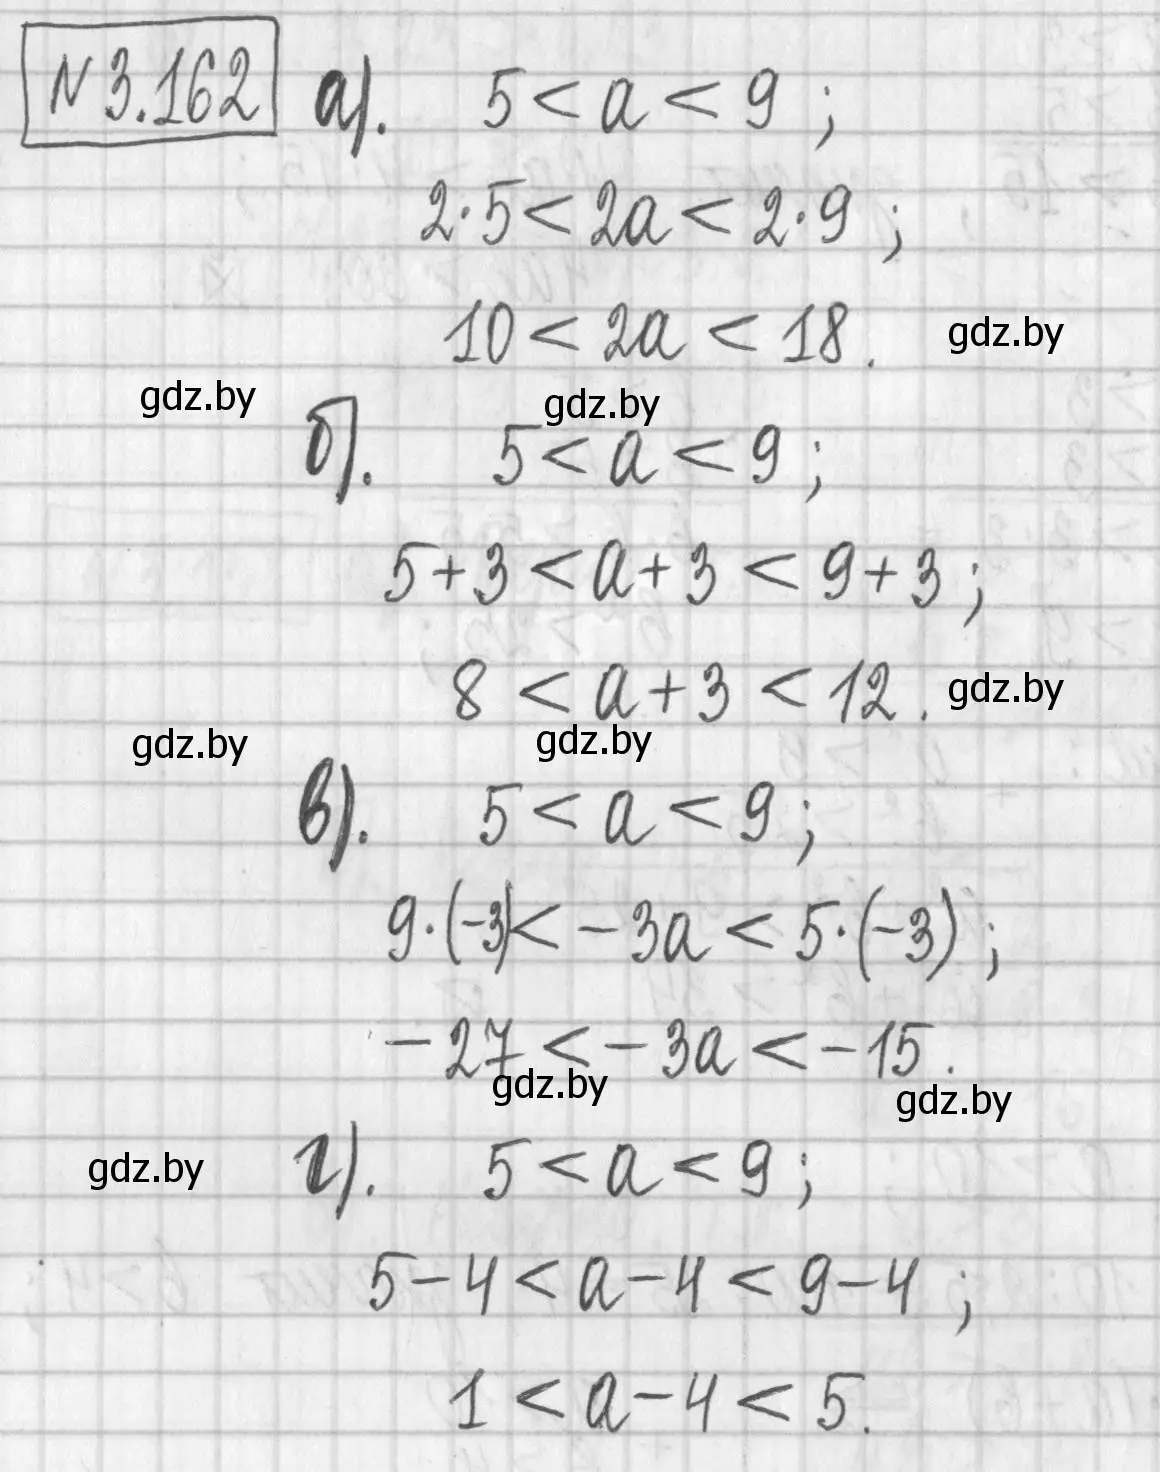 № 3.162 а). 5 < a < 9 ;
2·5 < 2a < 2·9 ;
10 < 2a < 18.
gdz.by
gdz.by
gdz.by
б). 5 < a < 9 ;
5+3 < a+3 < 9+3 ;
8 < a+3 < 12.
gdz.by
gdz.by
gdz.by
в). 5 < a < 9 ;
9·(-3) < -3a < 5·(-3) ;
-27 < -3a < -15.
gdz.by
gdz.by
г). 5 < a < 9 ;
gdz.by
5-4 < a-4 < 9-4 ;
1 < a-4 < 5.